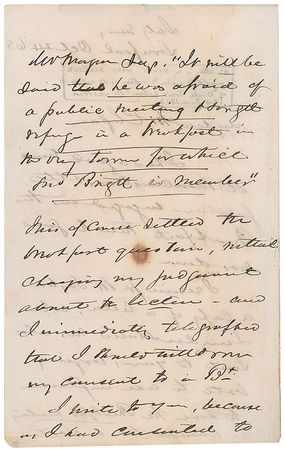 Mr Mayor Says, "It will be
said that he was afraid of
a public meeting & sought
refuge in a breakfast in
the very town for which
Jno Bright is member"
This of course settled the
breakfast question, without
changing my judgment
about the lecture – and
I immediately telegraphed
that I should withdraw
my consent to a Bt
I write to you, because
as I had consented to